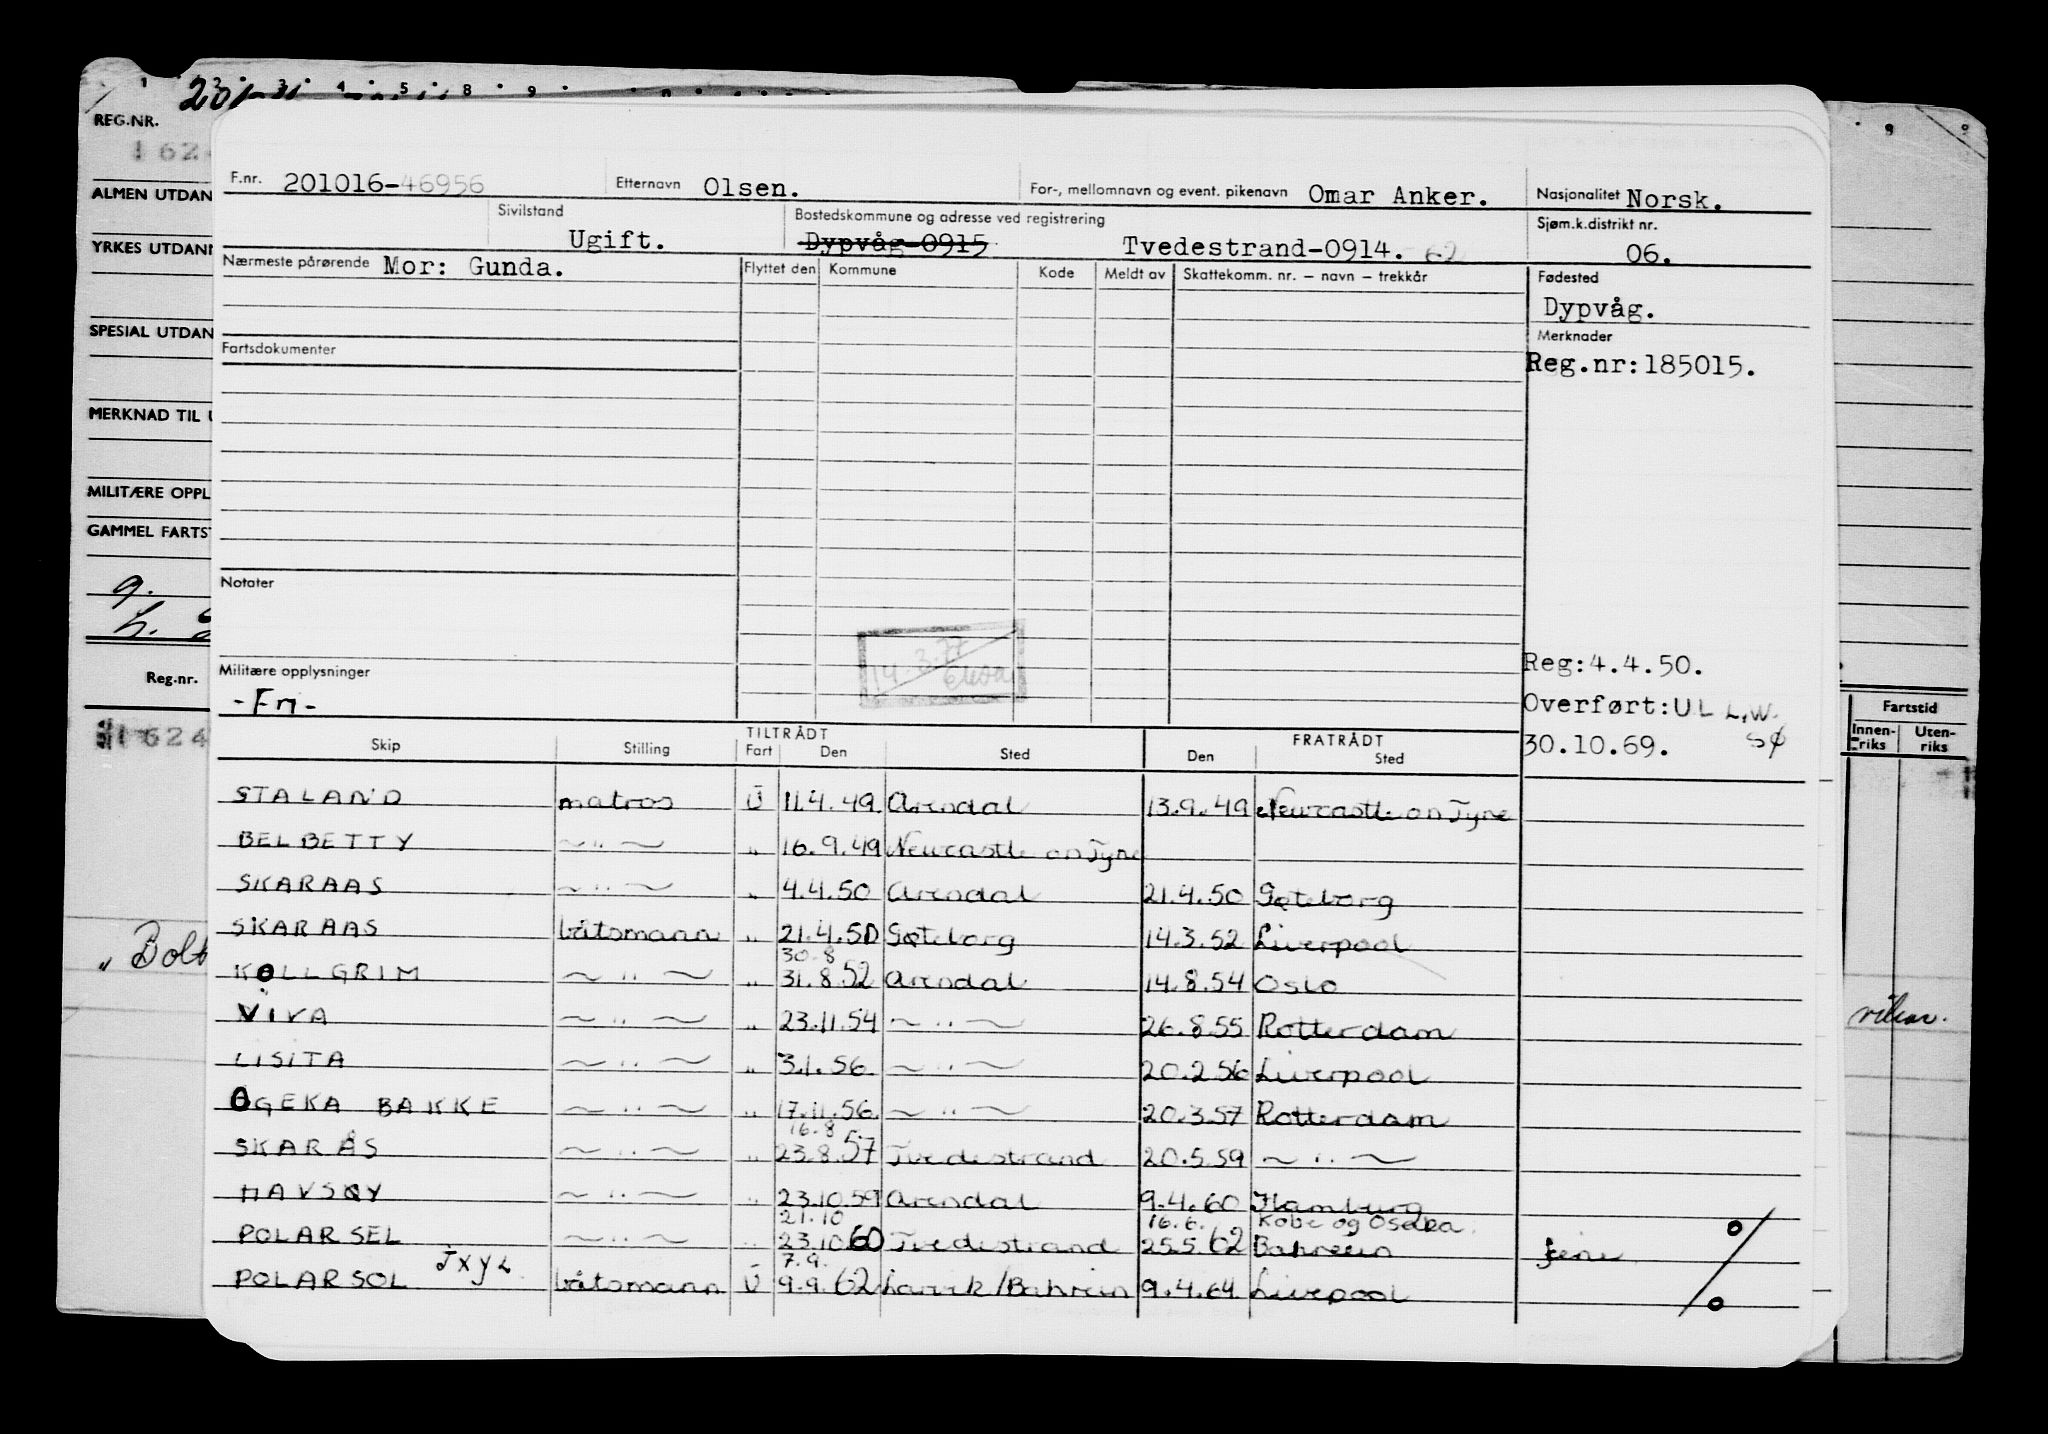 REG.NR.
ALMEN UTDAN
YRKES UTDAN
SPESIAL UTDAN
MERKNAD TIL U
MILITÆRE OPPL
GAMMEL FARTST
Reg.nr.
1624
„ Bolt
Fartstid
Innen-riks Uten-riks
F.nr. 201016-46956 Etternavn Olsen. For-, mellomnavn og event. pikenavn Omar Anker. Nasjonalitet Norsk.
Sivilstand Ugift. Bostedskommune og adresse ved registrering Dypvåg-0915 Tvedestrand-0914. 62 Sjøm.k.distrikt nr. 06.
Nærmeste pårørende Mor: Gunda. Flyttet den Kommune Kode Meldt av Skattekomm. nr. – navn – trekkår Fødested
Dypvåg.
Fartsdokumenter Merknader
Reg.nr:185015.
Notater
14.3.77
Militære opplysninger Reg:4.4.50.
-Fri- Overført:UL L.W.
30.10.69. SØ
TILTRÅDT FRATRÅDT
Skip Stilling Fart Den Sted Den Sted
STALAND matros U 11.4.49. Arendal 13.9.49 Newcastle on Tyne
BELBETTY ~ " ~ " 16.9.49 Newcastle on Tyne
SKARAAS ~ " ~ " 4.4.50 Arendal 21.4.50 Gøteborg
SKARAAS båtsmann " 21.4.50 Gøteborg 14.3.52 Liverpool
30.8
KOLLGRIM ~ " ~ " 31.8.52 Arendal 14.8.54 Oslo
VIVA ~ " ~ " 23.11.54 ~ " ~ 26.8.55 Rotterdam
LISITA ~ " ~ " 3.1.56. ~ " ~ 20.2.56 Liverpool
OGEKA BAKKE ~ " ~ " 17.11.56. ~ " ~ 20.3.57 Rotterdam
16.8
SKARÅS ~ " ~ " 23.8.57 Tvedestrand 20.5.59 ~ " ~
HAVSKY ~ " ~ " 23.10.59 Arendal 9.4.60 Hamburg
21.10 16.6. Kobe og Osaka.
POLARSEL ~ " ~ " 23.10.60 Tvedestrand 25.5.62 Bahrein
7.9.
POLARSOL JXYL båtsmann U 9.9.62 Larvik/Bahrein 9.4.64. Liverpool